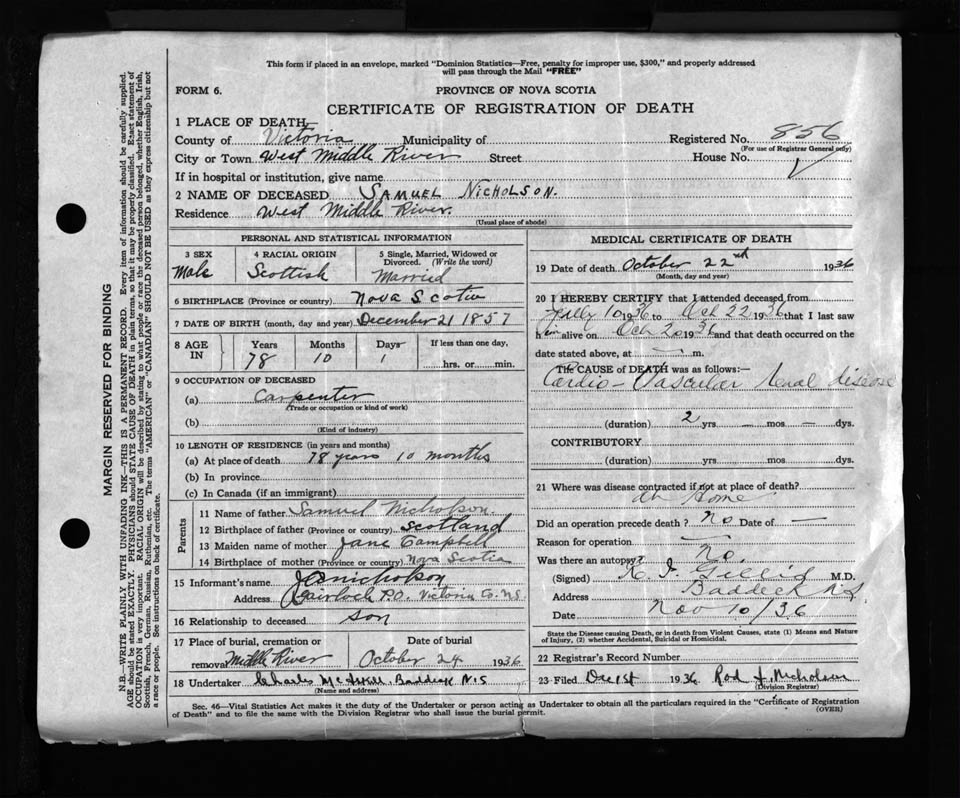 This form if placed in an envelope, marked "Dominion Statistics—Free, penalty for improper use, $300," and properly addressed
will pass through the Mail "FREE"
FORM 6.
PROVINCE OF NOVA SCOTIA
CERTIFICATE OF REGISTRATION OF DEATH
1 PLACE OF DEATH
County of Victoria Municipality of Registered No. 856
(For use of Registrar General only)
City or Town West Middle River Street House No.
If in hospital or institution, give name
2 NAME OF DECEASED SAMUEL NICHOLSON.
Residence West Middle River.
(Usual place of abode)
PERSONAL AND STATISTICAL INFORMATION
3 SEX 4 RACIAL ORIGIN 5 Single, Married, Widowed or Divorced. (Write the word)
Male Scottish Married
6 BIRTHPLACE (Province or country) Nova Scotia
7 DATE OF BIRTH (month, day and year) December 21 1857
8 AGE IN Years Months Days If less than one day,
78 10 1 hrs. or min.
9 OCCUPATION OF DECEASED
(a) Carpenter
(Trade or occupation or kind of work)
(b)
(Kind of industry)
10 LENGTH OF RESIDENCE (in years and months)
(a) At place of death 78 years 10 months
(b) In province
(c) In Canada (if an immigrant)
Parents
11 Name of father Samuel Nicholson.
12 Birthplace of father (Province or country) Scotland
13 Maiden name of mother Jane Campbell
14 Birthplace of mother (Province or country) Nova Scotia
15 Informant's name Nicholson
Address Gairloch P.O. Victoria Co. N.S.
16 Relationship to deceased son
17 Place of burial, cremation or removal Middle River
Date of burial October 24 1936
18 Undertaker Charles Baddeck N.S
(Name and address)
MEDICAL CERTIFICATE OF DEATH
19 Date of death October 22nd 1936
(Month, day and year)
20 I HEREBY CERTIFY that I attended deceased from
July 10 1936 to Oct 22 1936 that I last saw
him alive on Oct 20 1936 and that death occurred on the
date stated above, at — m.
The CAUSE of DEATH was as follows:—
Cardio-Vascular Renal disease
(duration) 2 yrs. — mos. — dys.
CONTRIBUTORY
(duration) yrs. mos. dys.
21 Where was disease contracted if not at place of death?
at Home
Did an operation precede death? no Date of —
Reason for operation —
Was there an autopsy? no
(Signed) Gillis M.D.
Address Baddeck N.S
Date Nov 10/36
State the Disease causing Death, or in death from Violent Causes, state (1) Means and Nature
of Injury, (2) whether Accidental, Suicidal or Homicidal.
22 Registrar's Record Number
23 Filed Dec 1st 1936 Rod J. Nicholson
(Division Registrar)
Sec. 46—Vital Statistics Act makes it the duty of the Undertaker or person acting as Undertaker to obtain all the particulars required in the "Certificate of Registration
of Death" and to file the same with the Division Registrar who shall issue the burial permit. (OVER)
MARGIN RESERVED FOR BINDING
N.B.—WRITE PLAINLY WITH UNFADING INK—THIS IS A PERMANENT RECORD. Every item of information should be carefully supplied.
AGE should be stated EXACTLY. PHYSICIANS should STATE CAUSE OF DEATH in plain terms, so that it may be properly classified. Exact statement of
OCCUPATION is very important. RACIAL ORIGIN will be described by stating to what people or race the deceased person belonged, whether English, Irish,
Scottish, French, German, Russian, Ruthenian, etc. The terms "AMERICAN" or "CANADIAN" SHOULD NOT BE USED as they express citizenship but not
a race or people. See instructions on back of certificate.